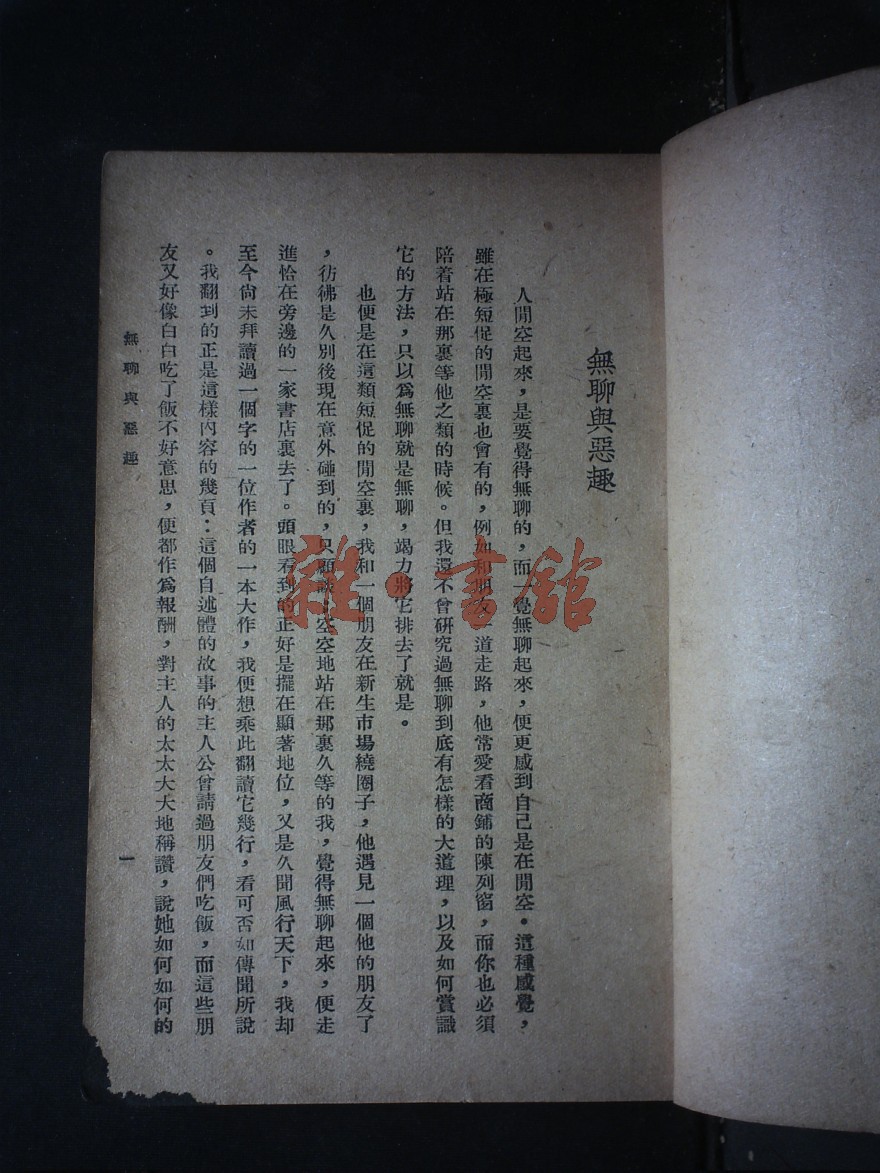 無聊與惡趣
人閒空起來，是要覺得無聊的，而一覺無聊起來，便更感到自己是在閒空。這種感覺，
雖在極短促的閒空裏也會有的，例如和朋友一道走路，他常愛看商鋪的陳列窗，而你也必須
陪着站在那裏等他之類的時候。但我還不曾研究過無聊到底有怎樣的大道理，以及如何賞識
它的方法，只以爲無聊就是無聊，竭力將它排去了就是。
也便是在這類短促的閒空裏，我和一個朋友在新生市場繞圈子，他遇見一個他的朋友了
，彷彿是久別後現在意外碰到的，只顧談，空空地站在那裏久等的我，覺得無聊起來，便走
進恰在旁邊的一家書店裏去了。頭眼看到的正好是擺在顯著地位，又是久聞風行天下，我却
至今尚未拜讀過一個字的一位作者的一本大作，我便想乘此翻讀它幾行，看可否如傳聞所說
。我翻到的正是這樣內容的幾頁：這個自述體的故事的主人公曾請過朋友們吃飯，而這些朋
友又好像白白吃了飯不好意思，便都作爲報酬，對主人的太太大大地稱讚，說她如何如何的
無聊與惡趣
一
雜·書館